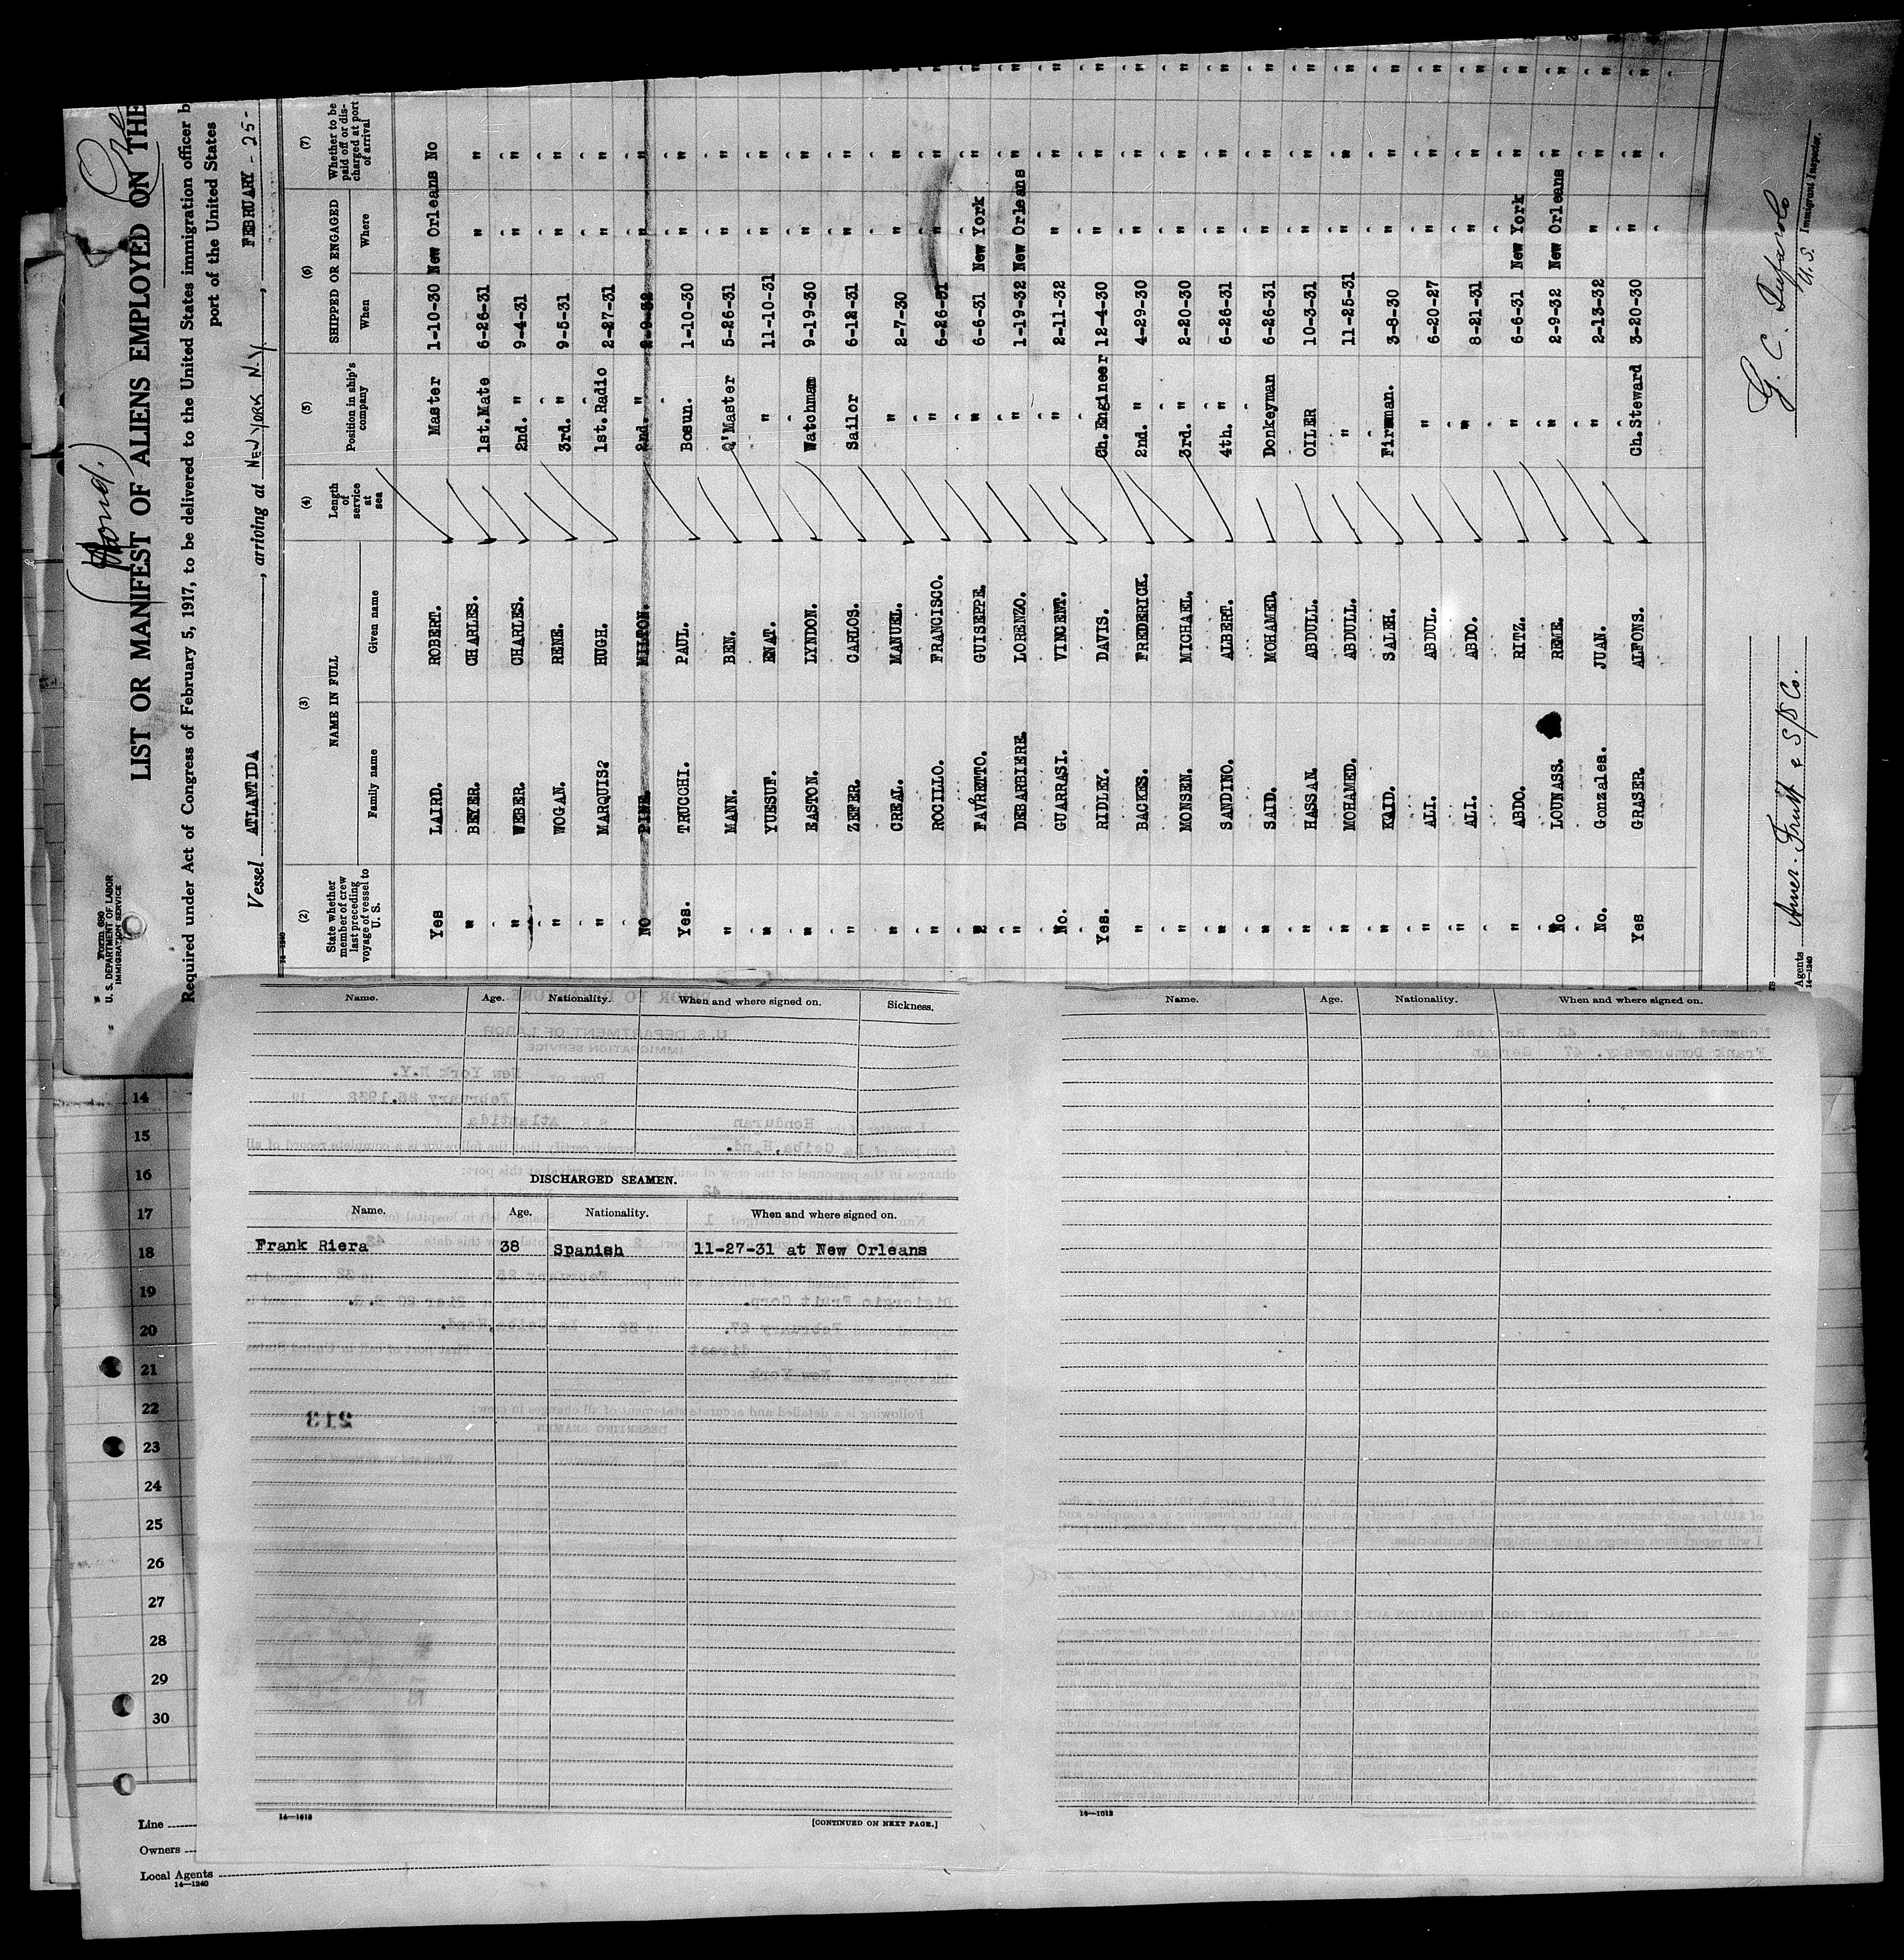 Form 680
U. S. DEPARTMENT OF LABOR
IMMIGRATION SERVICE
(Hond.)
LIST OR MANIFEST OF ALIENS EMPLOYED ON THE
Required under Act of Congress of February 5, 1917, to be delivered to the United States immigration officer b
port of the United States
Vessel ATLANTIDA, arriving at NEW YORK N.Y., FEBRUARY - 25 -
14—1240
(2) (3) (4) (5) (6) (7)
State whether member of crew last preceding voyage of vessel to U. S. NAME IN FULL Length of service at sea Position in ship's company SHIPPED OR ENGAGED Whether to be paid off or discharged at port of arrival
Family name Given name When Where
Yes LAIRD. ROBERT. Master 1-10-30 New Orleans No
" BEYER. CHARLES. 1st.Mate 6-26-31 " "
" WEBER. CHARLES. 2nd. " 9-4-31 " "
" WOGAN. RENE. 3rd. " 9-5-31 " "
" MARQUIS? HUGH. 1st.Radio 2-27-31 " "
NO MILTON. 2nd. " 2-9-32 " "
Yes. TRUCCHI. PAUL. Bosun. 1-10-30 " "
" MANN. BEN. Q'Master 5-26-31 " "
" YUSSUF. ENAT. " 11-10-31 " "
" EASTON. LYNDON. Watchman 9-19-30 " "
" ZEFER. CARLOS. Sailor 6-12-31 " "
" CREAL. MANUEL. " 2-7-30 " "
" ROCILLO. FRANCISCO. " 6-26-31 " "
" FAVRETTO. GUISEPPE. " 6-6-31 New York "
" DEBARBIERE. LORENZO. " 1-19-32 New Orleans "
No. GUARRASI. VINCENT. " 2-11-32 " "
Yes. RIDLEY. DAVIS. Ch.Engineer 12-4-30 " "
" BACKES. FREDERICK. 2nd. " 4-29-30 " "
" MONSEN. MICHAEL. 3rd. " 2-20-30 " "
" SANDINO. ALBERT. 4th. " 6-26-31 " "
" SAID. MOHAMED. Donkeyman 6-26-31 " "
" HASSAN. ABDULL. OILER 10-3-31 " "
" MOHAMED. ABDULL. " 11-25-31 " "
" KAID. SALEH. Fireman. 3-8-30 " "
" ALI. ABDUL. " 6-20-27 " "
" ALI. ABDO. " 8-21-31 " "
" ABDO. RITZ. " 6-6-31 New York "
No LOUNASS. REME. " 2-9-32 New Orleans "
No. Gonzales. JUAN. " 2-13-32 " "
Yes GRASER. ALFONS. Ch.Steward 3-20-30 " "
Agents Amer. Fruit & S/S Co.
14—1240
U. S. Immigrant Inspector.
Name. Age. Nationality. When and where signed on. Sickness.
DISCHARGED SEAMEN.
Name. Age. Nationality. When and where signed on.
Frank Riera 38 Spanish 11-27-31 at New Orleans
213
14—1613
[CONTINUED ON NEXT PAGE.]
Name. Age. Nationality. When and where signed on.
14—1613
14
15
16
17
18
19
20
21
22
23
24
25
26
27
28
29
30
Line
Owners
Local Agents
14—1240